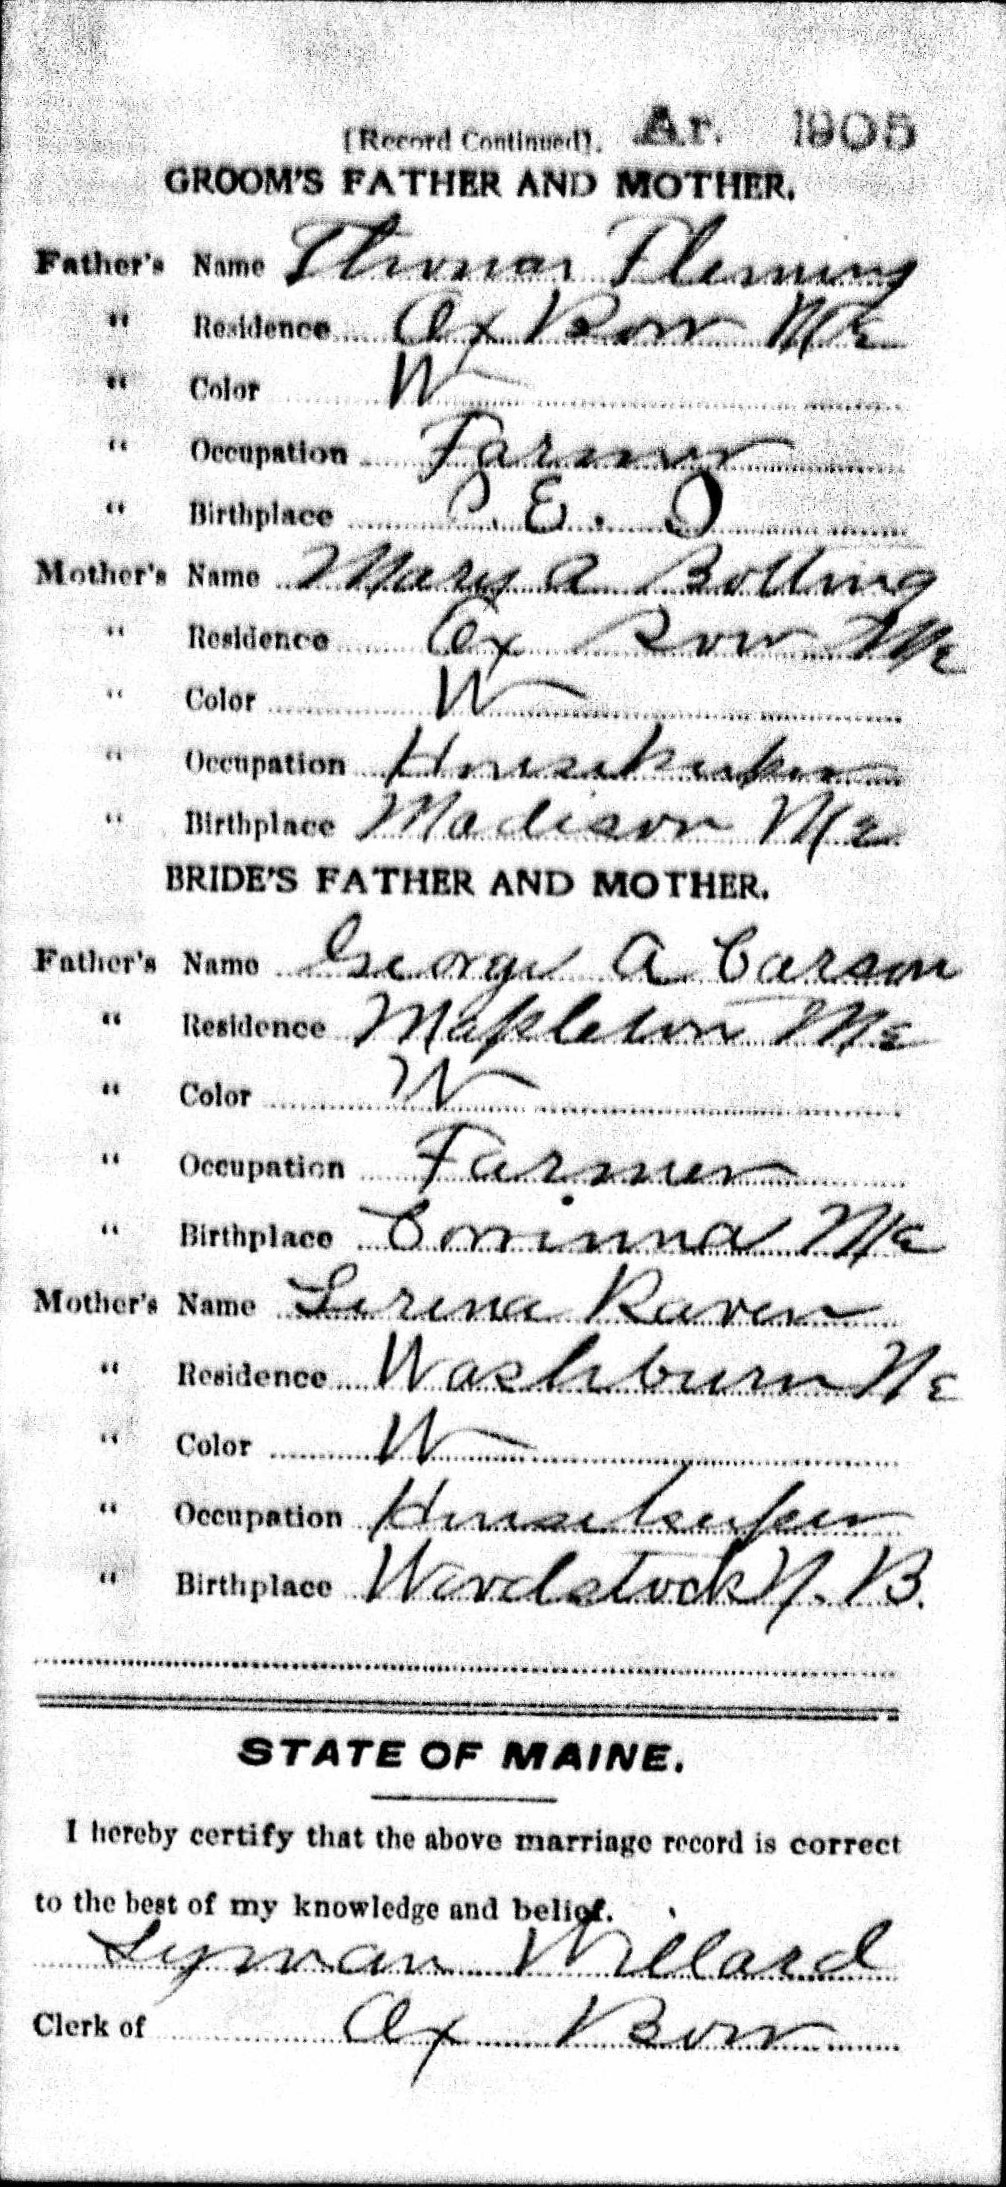 (Record Continued). Ar. 1905
GROOM'S FATHER AND MOTHER.
Father's Name Thomas Fleming
" Residence Ox Bow Me
" Color W
" Occupation Farmer
" Birthplace P. E. I
Mother's Name Mary A
" Residence Ox Bow Me
" Color W
" Occupation Housekeeper
" Birthplace Madison Me
BRIDE'S FATHER AND MOTHER.
Father's Name George A Carson
" Residence Mapleton Me
" Color W
" Occupation Farmer
" Birthplace Corinna Me
Mother's Name Raven
" Residence Washburn Me
" Color W
" Occupation Housekeeper
" Birthplace Woodstock N. B.
STATE OF MAINE.
I hereby certify that the above marriage record is correct
to the best of my knowledge and belief.
Lyman Willard
Clerk of Ox Bow